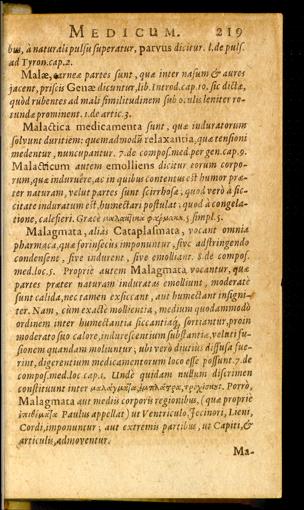 MEDICUM. 219
bus, à naturali pulsu superatur, parvus dicitur. 1. de puls.
ad Tyron. cap. 2.
Malæ, carneæ partes sunt, quæ inter nasum & aures
jacent, priscis Genæ dicuntur, lib. Introd. cap. 10. sic dictæ,
quòd rubentes ad mali similitudinem sub oculis leniter ro-
tundæ prominent. 1. de artic. 3.
Malactica medicamenta sunt, quæ induratorum
solvunt duritiem: quemadmodū relaxantia, quæ tensioni
medentur, nuncupantur. 7. de compos. med. per gen. cap. 9.
Malacticum autem emolliens dicitur eorum corpo-
rum, quæ induruêre, ac in quibus contentus est humor præ-
ter naturam, velut partes sunt scirrhosæ, quod verò à sic-
citate induratum est, humectari postulat: quod à congela-
tione, calefieri. Græcè μαλακτικὰ φάρμακα. 5 simpl. 5.
Malagmata, aliàs Cataplasmata, vocant omnia
pharmaca, quæ forinsecùs imponuntur, sive adstringendo
condensent, sive indurent, sive emolliant. 8. de compos.
med. loc. 5. Propriè autem Malagmata vocantur, quæ
partes præter naturam induratas emolliunt, moderatè
sunt calida, nec tamen exsiccant, aut humectant insigni-
ter. Nam, cùm exactè mollientia, medium quodammodò
ordinem inter humectantia siccantiaq́, sortiantur, proin
moderato suo calore, indurescentium substantiæ, veluti fu-
sionem quandam moliuntur; ubi verò diutiùs diffusa fue-
rint, digerentium medicamentorum loco esse possunt. 7. de
compos. med. loc. cap. 1. Unde quidam nullum discrimen
constituunt inter μαλάγματα, ἔμπλαστρα, τροχίσκοι. Porrò,
Malagmata aut mediis corporis regionibus, (quæ propriè
ἐπιθέματα Paulus appellat) ut Ventriculo, Jecinori, Lieni,
Cordi, imponuntur; aut extremis partibus, ut Capiti, &
articulis, admoventur.
Ma-